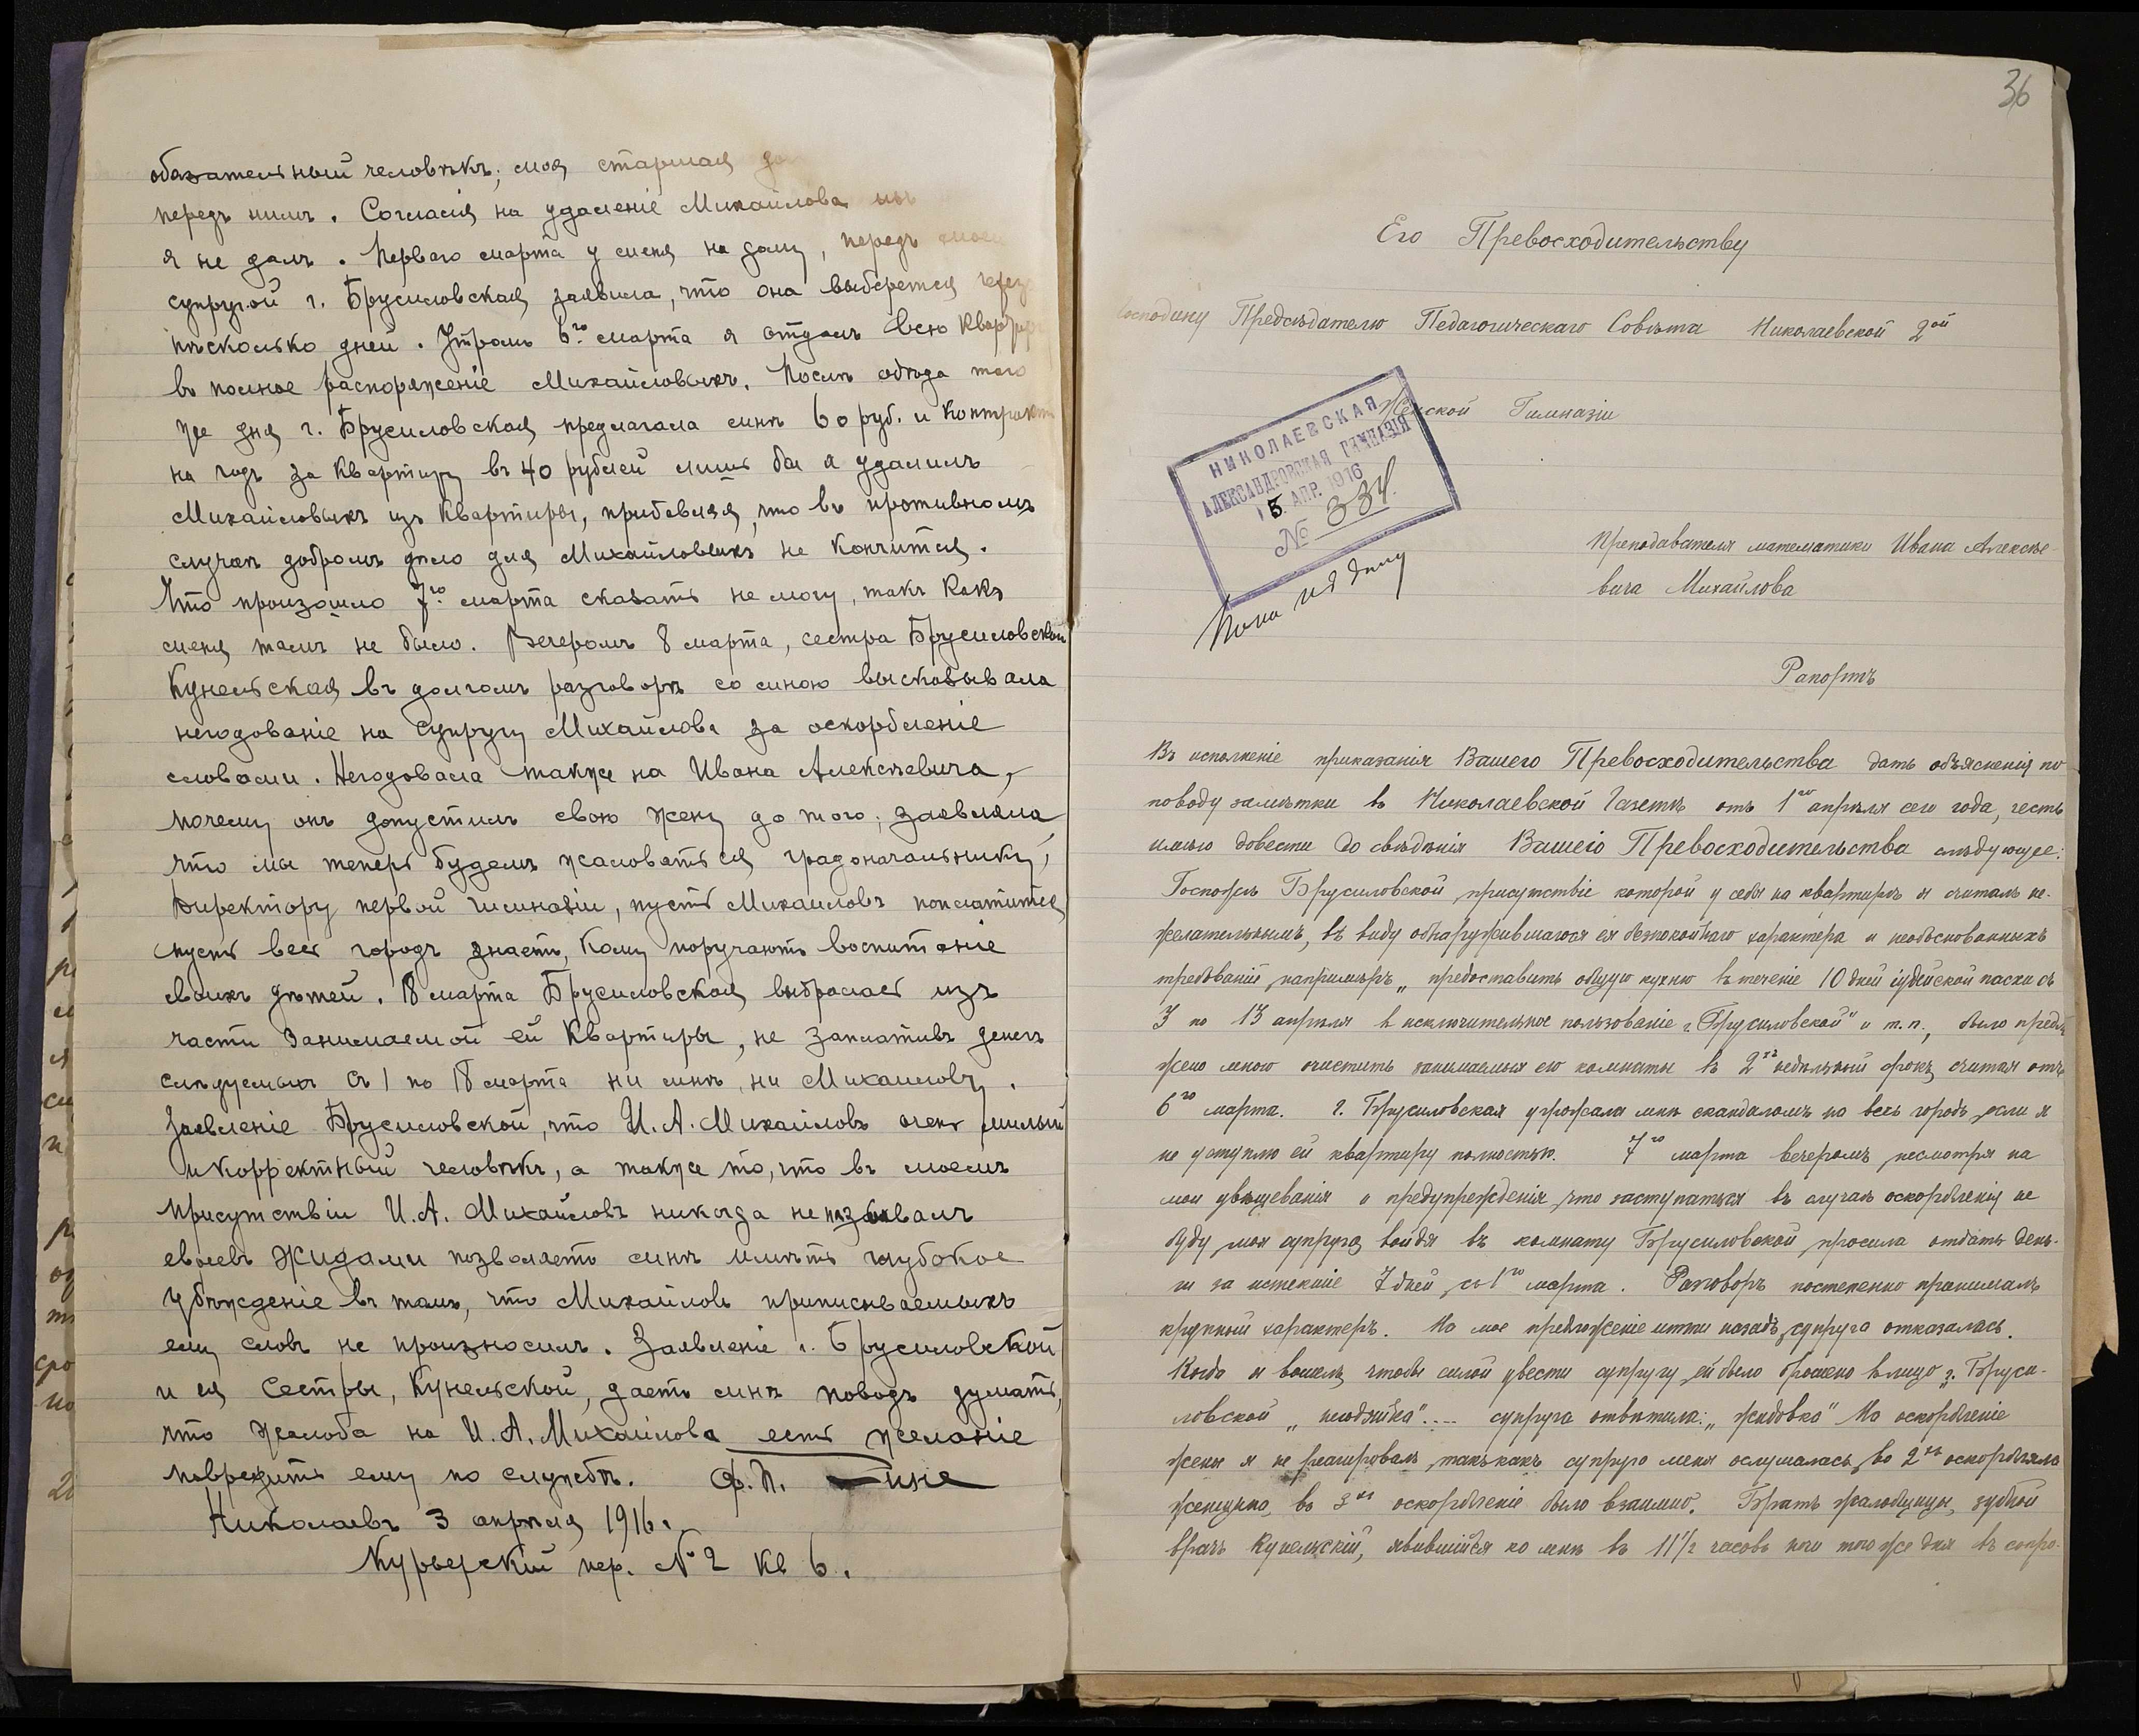 обязательный человѣкъ; моя старшая
передъ нимъ. Согласія на удаленіе Михайлова
я не далъ. Перваго марта у меня на дому, передъ моей
супругой г. Брусиловская заявила, что она выберется через
нѣсколько дней. Утромъ 6го марта я отдалъ всю квартиру
въ полное распоряженіе Михайловыхъ. Послѣ обѣда того
же дня г. Брусиловская предлагала мнѣ 60 руб. и контрактъ
на годъ за квартиру въ 40 рублей лишь бы я удалилъ
Михайловыхъ изъ квартиры, прибавляя, что въ противномъ
случаѣ добромъ дѣло для Михайловыхъ не кончится.
Что произошло 7го марта сказать не могу, такъ какъ
меня тамъ не было. Вечеромъ 8 марта, сестра Брусиловской
Кунельская въ долгомъ разговорѣ со мною высказывала
негодованіе на супругу Михайлова за оскорбленіе
словами. Негодовала также на Ивана Алексѣевича,
почему онъ допустилъ свою жену до того; заявляла,
что мы теперь будемъ жаловаться градоначальнику,
директору первой гимназіи, пусть Михайловъ поплатится,
пусть весь городъ знаетъ, кому поручаютъ воспитаніе
своихъ дѣтей. 18 марта Брусиловская выбралась изъ
части занимаемой ей квартиры, не заплативъ денегъ
слѣдуемыхъ съ 1 по 18 марта ни мнѣ, ни Михайлову.
Заявленіе Брусиловской, что И. А. Михайловъ очень милый
и корректный человѣкъ, а также то, что въ моемъ
присутствіи И. А. Михайловъ никогда не называлъ
евреевъ жидами позволяетъ мнѣ имѣть глубокое
убѣжденіе въ томъ, что Михайловъ приписываемыхъ
ему словъ не произносилъ. Заявленіе г. Брусиловской
и ея сестры, Кунельской, даетъ мнѣ поводъ думать,
что жалоба на И. А. Михайлова есть желаніе
повредить ему по службѣ. Ф. П.
Николаевъ 3 апрѣля 1916 г.
Курьерскій пер. № 2 кв 6.
36
Его Превосходительству
Господину Предсѣдателю Педагогическаго Совѣта Николаевской 2ой
Женской Гимназіи
НИКОЛАЕВСКАЯ
АЛЕКСАНДРОВСКАЯ ГИМНАЗІЯ
5 АПР. 1916
№ 334.
Преподавателя математики Ивана Алексѣе-
вича Михайлова
Рапортъ
Въ исполненіе приказанія Вашего Превосходительства дать объясненія по
поводу замѣтки въ Николаевской Газетѣ отъ 1го апрѣля сего года, честь
имѣю довести до свѣдѣнія Вашего Превосходительства слѣдующее:
Госпожѣ Брусиловской, присутствіе которой у себя на квартирѣ я считалъ не-
желательнымъ, въ виду обнаружившагося ея безпокойнаго характера и необоснованныхъ
требованій, напримѣръ, „предоставить общую кухню въ теченіе 10 дней іудейской пасхи съ
3 по 13 апрѣля въ исключительное пользованіе г. Брусиловской" и т. п., было предло
жено мною очистить занимаемыя ею комнаты въ 2хъ недѣльный срокъ, считая отъ
6го марта. г. Брусиловская угрожала мнѣ скандаломъ на весь городъ, если я
не уступлю ей квартиру полностью. 7го марта вечеромъ, несмотря на
мои увѣщеванія и предупрежденія, что заступаться въ случаѣ оскорбленія не
буду, моя супруга, войдя въ комнату Брусиловской, просила отдать день-
ги за истекшіе 7 дней, съ 1го марта. Разговоръ постепенно принималъ
крупный характеръ. На мое предложеніе итти назадъ, супруга отказалась.
Когда я вошелъ, чтобы силой увести супругу, ей было брошено въ лицо г. Бруси-
ловской „негодяйка".... супруга отвѣтила: „жидовка" На оскорбленіе
жены я не реагировалъ, такъ какъ супруга меня ослушалась, во 2хъ оскорбляла
женщина, въ 3хъ оскорбленіе было взаимно. Братъ жалобщицы, зубной
врачъ Кунельскій, явившійся ко мнѣ въ 11 1/2 часовъ ночи того же дня въ сопро-